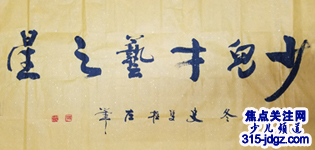 少儿才藝之星
冬史旦書
焦点关注网
少儿频道
315-jdgz.com